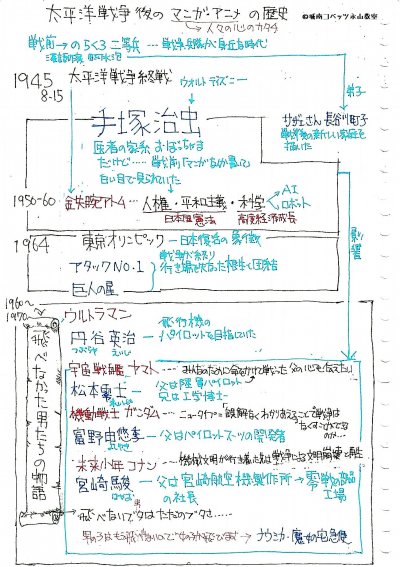 太平洋戦争後のマンガ・アニメの歴史
©城南コベッツ永山教室
人々の心のカタチ
戦前→のらくろ二等兵…戦争
身近な時代
1945 太平洋戦争終戦
8-15
ウォルトディズニー
弟子
手塚治虫
サザエさん 長谷川町子
戦争後の新しい家庭を描いた
医者の家系 おぼっちゃま
だけど……戦前「マンガなんか書いて」
白い目で見られていた
1950-60 鉄腕アトム → 人権・平和主義・科学
AI
ロボット
日本国憲法
高度経済成長
影響
1964 東京オリンピック — 日本復活の象徴
アタックNo.1
戦争が終り
行き場を失なった根性と団結
巨人の星
1960〜
1970〜
ウルトラマン
飛行機の
円谷英治 パイロットを目指していた
つぶらや えいじ
「飛べなかった男たちの物語」
宇宙戦艦ヤマト — みんなのために命をかけて戦った父の心を伝えたい
松本零士 父は陸軍パイロット
兄は工学博士
機動戦士ガンダム — ニュータイプ=誤解なくわかりあえることで戦争は
なくすことができる
のか…
富野由悠季 — 父はパイロットスーツの開発者
未来少年コナン — 機械文明が行き着いた先は戦争による文明崩壊と再生
宮崎駿 — 父は宮崎航空機製作所 → 零戦の部品
の社長
工場
はやお
飛べないブタはただのブタさ……
ナウシカ・魔女の宅急便